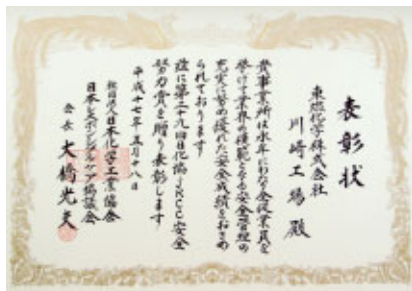 表彰状
東燃化学株式会社
川崎工場殿
貴事業所は永年にわたり全従業員を
挙げて業界の模範となる安全管理の
充実に努め優れた安全成績をおさめ
られております
茲に第二十九回日化協JRCC安全
努力賞を贈り表彰します
平成十七年五月十八日
社団法人日本化学工業協会
日本レスポンシブル・ケア協議会
会長 大橋光夫